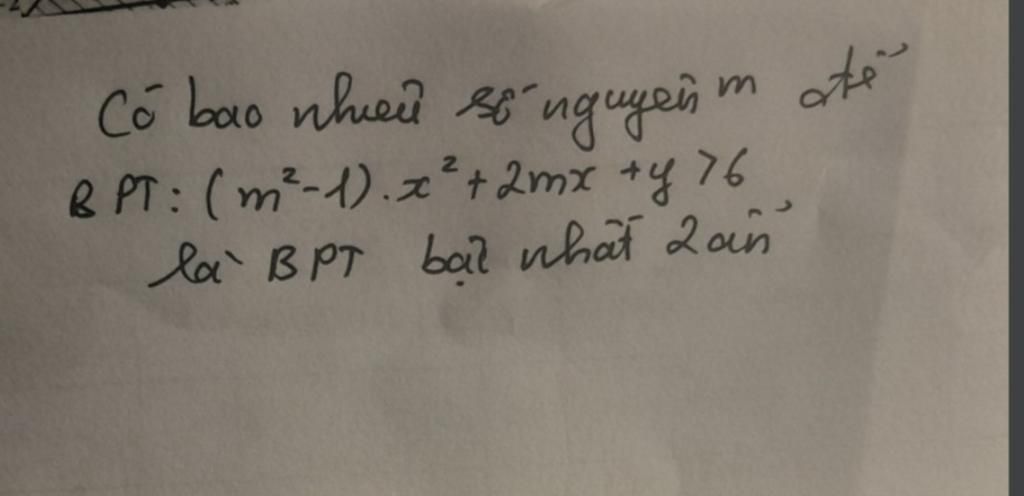 Có bao nhiêu số nguyên m để
BPT: (m²-1).x²+2mx+y>6
là BPT bậc nhất 2 ẩn